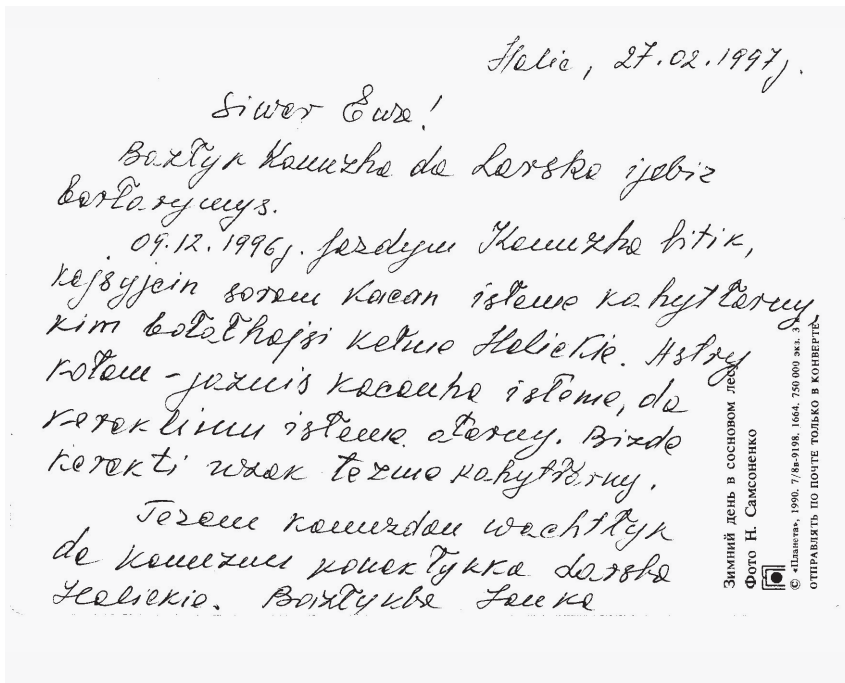 Halic, 27.02.1997j.
Siwer Ewa!
Bazłyk Kamuzha da Larsha ijebiz
barłarymys.
09.12.1996j. jazdym Kamuzha bitik,
kajsyjcin soram kacan isteme kahytłarny,
kim bołałhajsi kelme Halickie. Astry
kołam - jaznis kacanha isteme, da
kereklimu isteme ałarny. Bizde
kerekti uzak tezme kahytłarny.
Tezem kamuzdan wachtłyk
da kamuznu konakłykka Larsha
Halickie. Bazłykba Janka
Зимний день в сосновом лесу
Фото Н. Самсоненко
© «Планета», 1990. 7/8в-9198. 1664. 750 000 экз. 3
ОТПРАВЛЯТЬ ПО ПОЧТЕ ТОЛЬКО В КОНВЕРТЕ